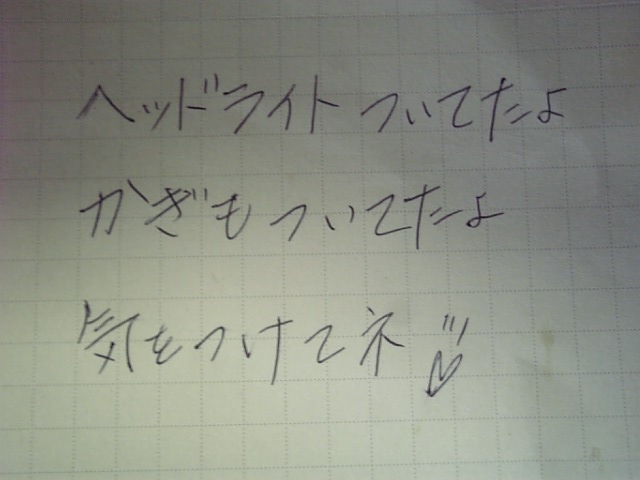 ヘッドライトついてたよ
かぎもついてたよ
気をつけてネ!!♡